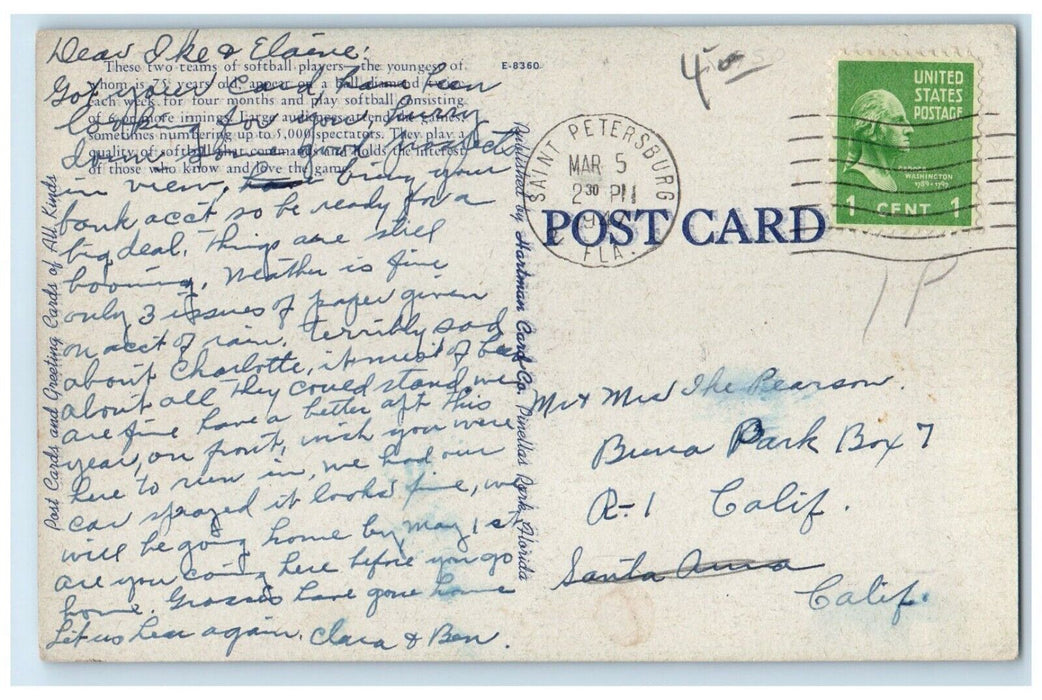 Dear Ike & Elaine:
Got your card, have been
looking for one, hurray
in view, bring your
bank acct so be ready for a
big deal. Things are still
booming. Weather is fine
only 3 issues of paper given
on acct of rain. Terribly sad
about Charlotte, it must of been
about all they could stand, we
are fine have a better apt this
year, on front, wish you were
here to run in, we had our
car sprayed it looks fine, we
will be going home by May 1st
are you coming here before you go
home. have gone home
Let us hear again. Clara & Ben.
These two teams of softball players—the youngest of
whom is 75 years old, appear on a ball diamond
each week for four months and play softball consisting
of 6 or more innings. Large audiences attend the games,
sometimes numbering up to 5,000 spectators. They play a
quality of softball that commands and holds the interest
of those who know and love the game.
E-8360
Post Cards and Greeting Cards of All Kinds
Published by Hartman Card Co., Pinellas Park, Florida
POST CARD
SAINT PETERSBURG
MAR 5
2 30 PM
FLA.
UNITED
STATES
POSTAGE
GEORGE
WASHINGTON
1789-1797
1 CENT 1
4.00
1P
Mr & Mrs Ike Pearson.
Buena Park Box 7
R-1 Calif.
Santa Anna
Calif.